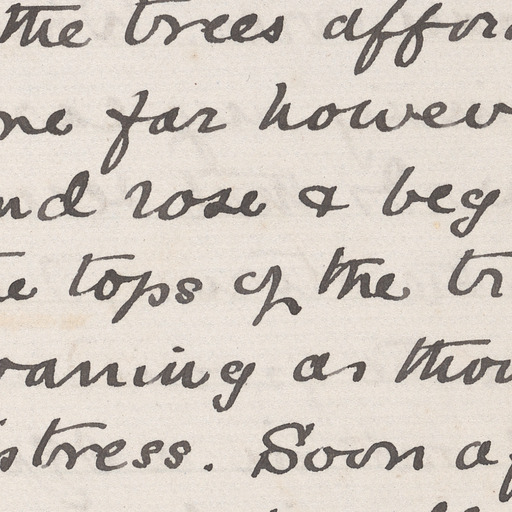 the trees affor
ne far howev
nd rose & beg
e tops of the tr
oaning as thou
stress. Soon af